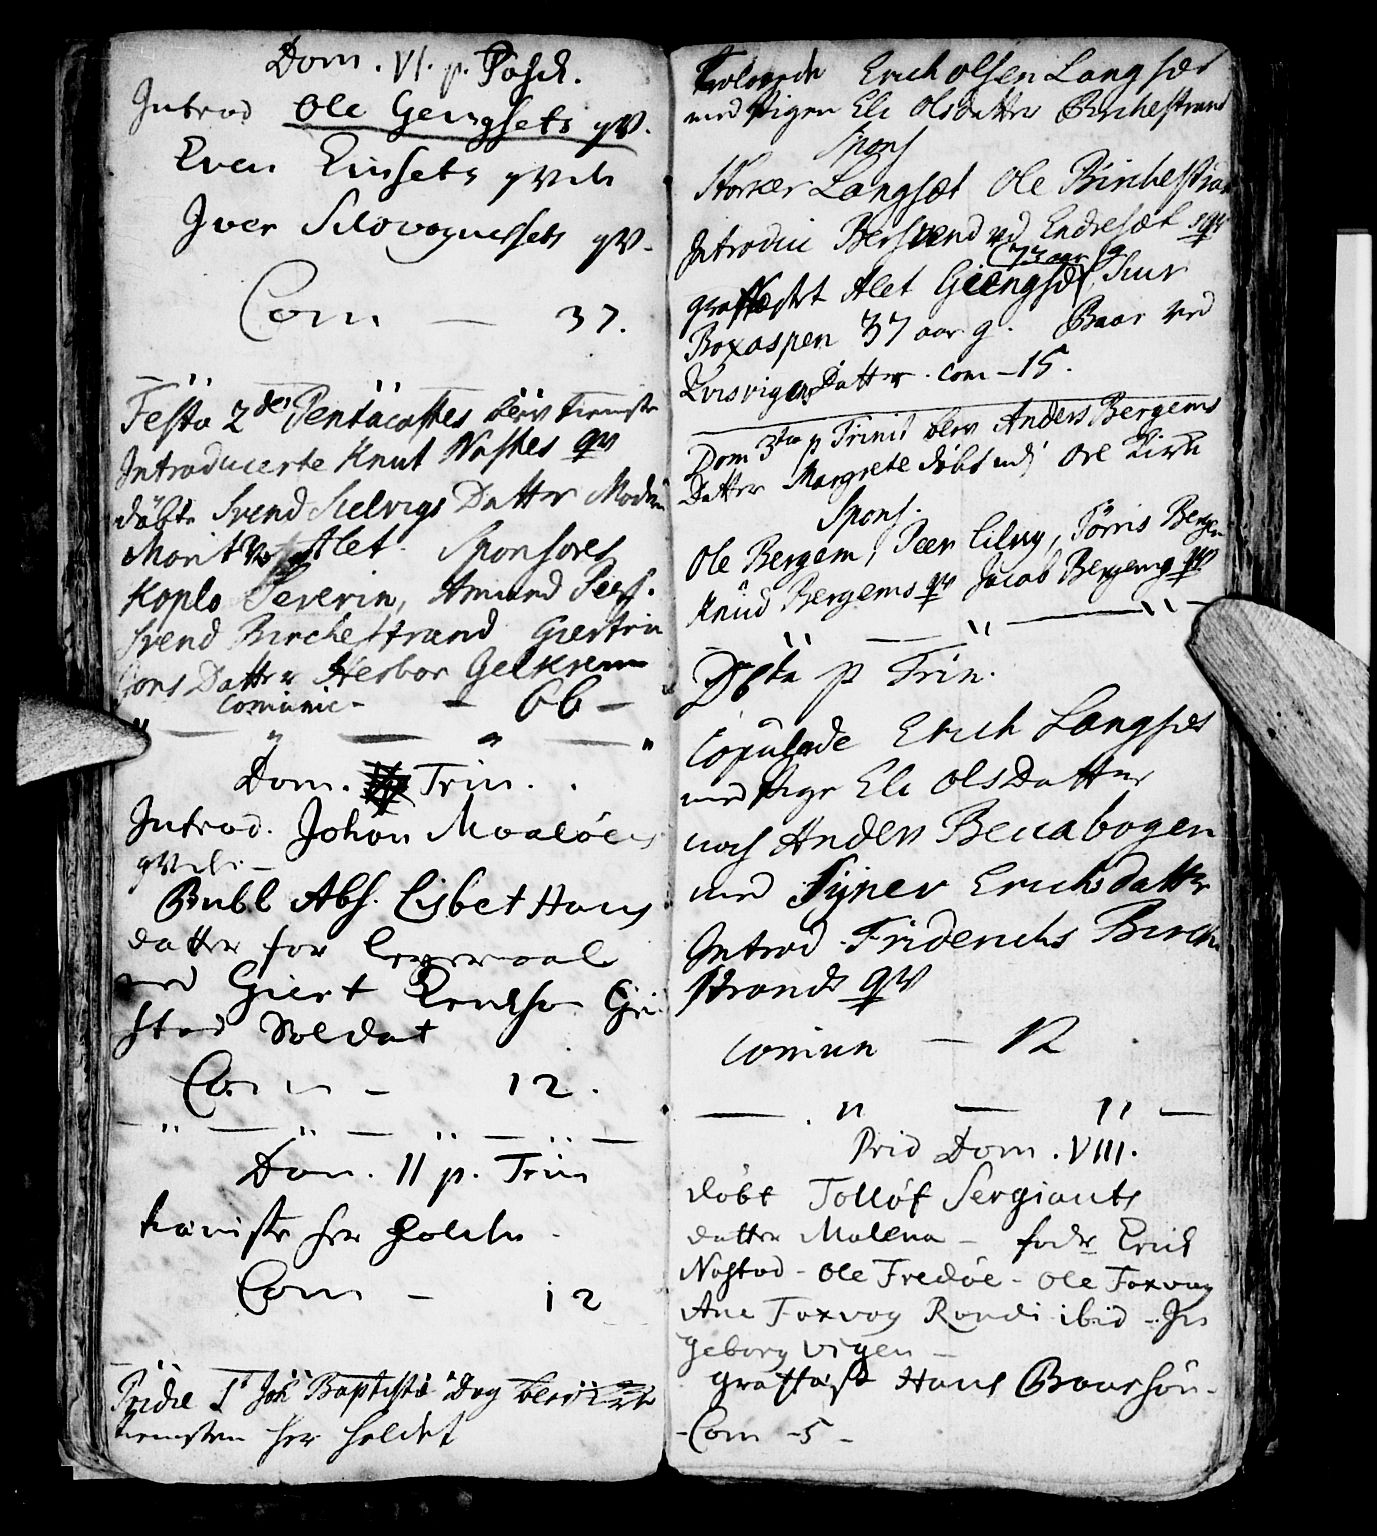 Dom. VI. p. Pasch.
Introd Ole Gengsets qv.
Even Einsets qvde
Iver Silovognessets qv.
Com — 37.
Festo 2den Pentacostes blev tieniste
Introducerte Knut Nastes qv
døbte Svend Selvigs Datter
Morit Alet. Sponsores
Koplo Severin, Amund Peers.
Svend Birchestrand Giertru
Jons Datter Herbor Gelkrem
Comunic - - 66 -
Dom. Trin.
Introd. Johan Moaløes
qvde. -
Publ Abs. Lisbet Hans
datter for leyermaal
med Giert Knudsøn
Soldat
Com - 12.
Dom. II p. Trin
tieniste her holden.
Com - 12
Pridie St Joh Baptistæ Dag blev
tienesten her holdet
Trolovede Erich Olsen Langsæt
med Pigen Eli Olsdatter Birchestrand
Spons
Langsæt Ole Birchestrand
Introduc Bersvend Endresæt qv
grafæstet Alet Giengsæt 73 aar g Siur
Boxaspen 37 aar g. Baar ved
Datter. Com - 15.
Dom 3tia p Trinit blev Anders Bergems
Datter Margrete døbt udi Ore Kirke
Spons.
Ole Bergem, Peer Lilvy, Tørris Bergem
Knud Bergems qv Jacob Bergems qv
D 6ta p Trin.
Copulerede Erich Langsæt
med Pige Eli Olsdatter
noch Anders Bellabogen
med Signer Erichsdatter
Introd. Friderichs Birche
strands qv
Comun — 12
Prid Dom. VIII.
døbt Tolløf Sergiants
datter Malena - fadr Erick
Nastad - Ole Fredøe - Ole Foxvog
Ane Foxvog Randi ibid - In
geborg Vigen -
grafæst Hans Baarsøn -
- Com - 5 -